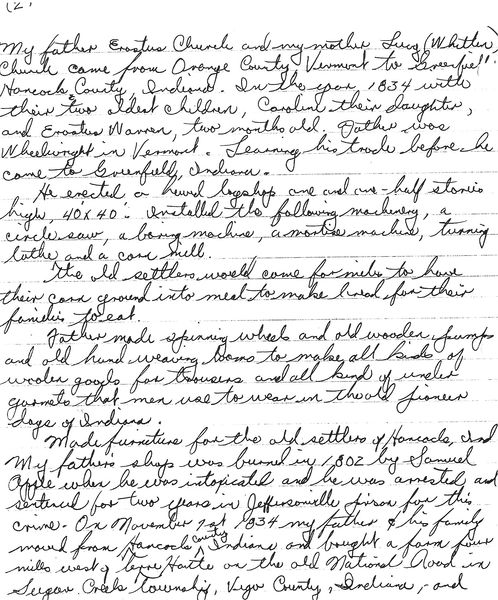 (2)
My father Erastus Church and my mother Lucy (Whitten)
Church came from Orange County Vermont to Greenfiel
Hancock County, Indiana. In the year 1834 with
their two oldest children, Caroline their daughter,
and Erastus Warren, two months old. Father was
Wheelwright in Vermont. Learning his trade before he
came to Greenfield, Indiana.
He erected a hewd logshop one and one-half stories
high, 40'x 40'. Installed the following machinery, a
circle saw, a boring machine, a mortise machine, turning
lathe and a corn mill.
The old settlers would come for miles to have
their corn ground into meal to make bread for their
families to eat.
Father made spinning wheels and old wooden pumps
and old hand weaving looms to make all kinds of
woolen goods for trousers and all kind of under
garments that men use to wear in the old pioneer
days of Indiana.
Made furniture for the old settlers of Hancock, Ind
My fathers shop was burned in 1802 by Samuel
Apple when he was intoxicated and he was arrested and
sentenced for two years in Jeffersonville prison for this
crime. On November 1834 my father & his family
moved from Hancock County Indiana and bought a farm four
miles west of Terre Haute on the old National Road in
Sugar Creek township, Vigo County, Indiana, and